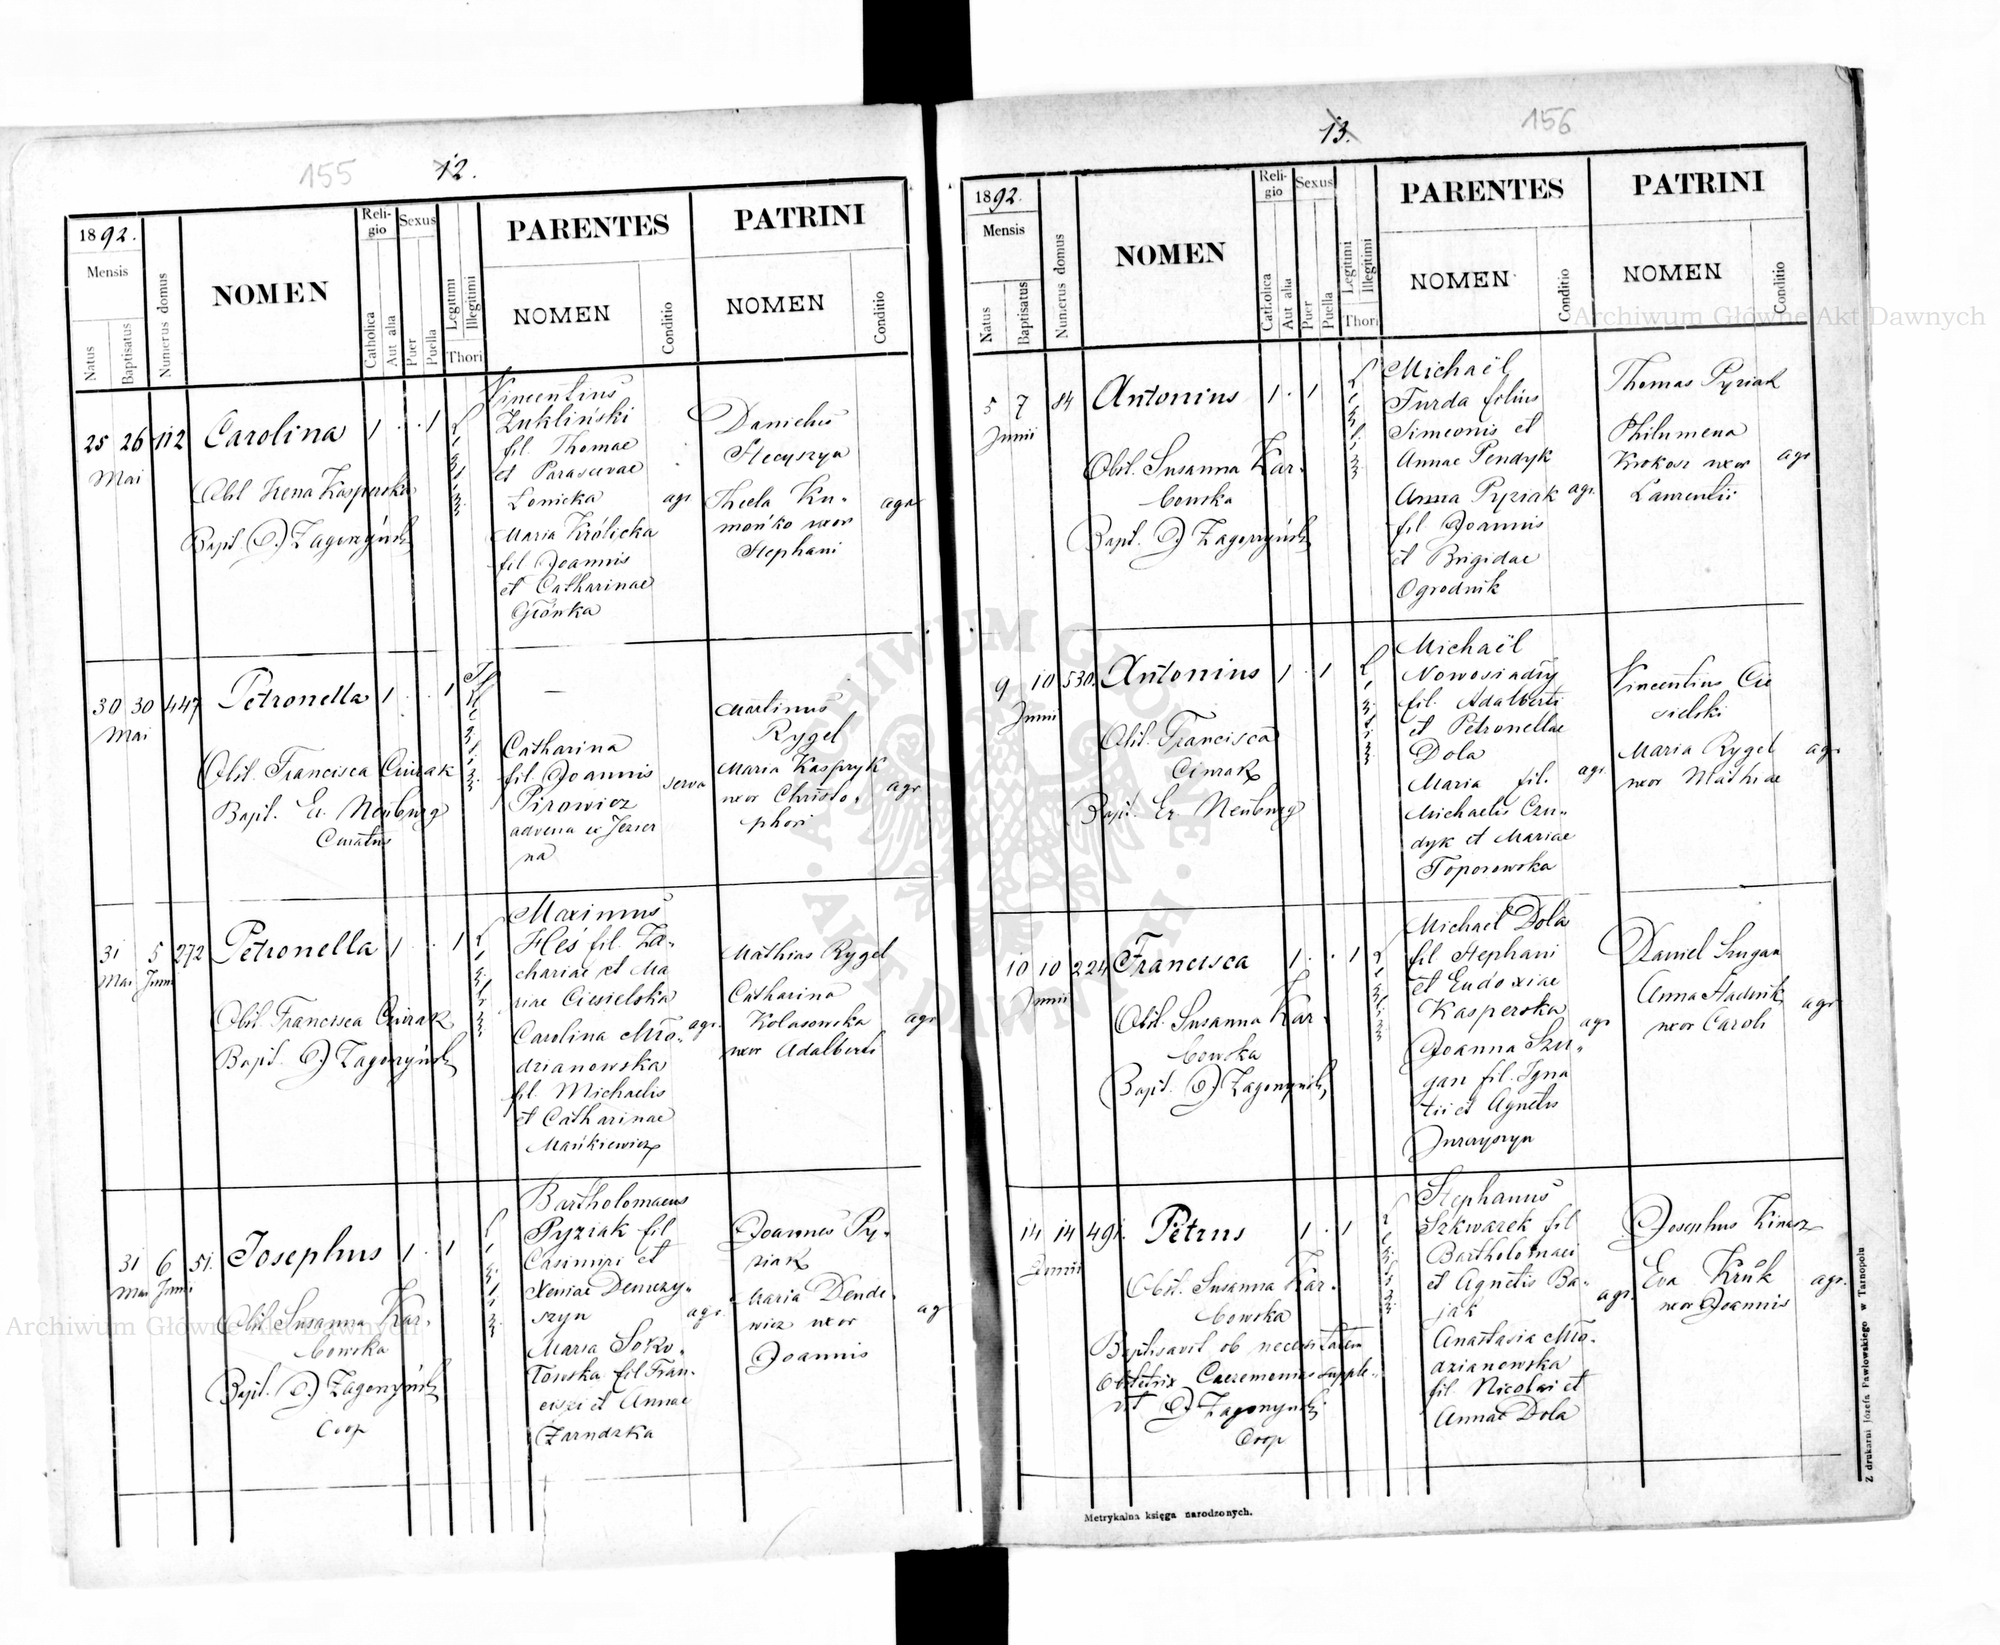 155
12.
1892.
Mensis
Natus
Baptisatus
Numerus domus
NOMEN
Reli-
gio
Catholica
Aut alia
Sexus
Puer
Puella
Legitimi
Illegitimi
Thori
PARENTES
NOMEN
Conditio
PATRINI
NOMEN
Conditio
25 26 112
Mai
Carolina
1 . . 1
Obst Irena Kasperska
Bapt. D. Zagorzyński
Vincentius
Zukliński
fil. Thomae
et Parascevae
Łonicka
agr
Maria Królicka
fil Joannis
et Catharinae
Główka
Danielus
Hecyszyn
Thecla Ku-
mońko uxor
Stephani
agr
30 30 447
Mai
Petronella
1 . . 1
Obst. Francisca Ciurak
Bapt. Er. Neuburg
Curatus
—
Catharina
fil. Joannis
Pirowicz
advena ex Jezier
na
serva
Martinus
Rygel
Maria Kaspryk
uxor Christo-
phori
agr
31 5 272
Mai Junii
Petronella
1 . . 1
Obst. Francisca Ciurak
Bapt. D. Zagorzyński
Maximus
Heś fil. Za-
chariae et Ma
riae Ciesielska
Carolina Mło-
dzianowska
fil. Michaelis
et Catharinae
Mańkiewicz
agr.
Mathias Rygel
Catharina
Kolasowska
uxor Adalberti
agr
31 6 51.
Mai Junii
Josephus
1 . 1
Obst. Susanna Kar-
bowska
Bapt. D. Zagorzyński
Coop
Bartholomaeus
Pyziak fil
Casimiri et
Xeniae Demczy-
szyn
agr.
Maria Soko-
łowska fil Fran-
cisci et Annae
Zarudzka
Joannes Py-
ziak
Maria Dende-
wicz uxor
Joannis
agr
156
13.
1892.
Mensis
Natus
Baptisatus
Numerus domus
NOMEN
Reli-
gio
Catholica
Aut alia
Sexus
Puer
Puella
Legitimi
Illegitimi
Thori
PARENTES
NOMEN
Conditio
PATRINI
NOMEN
Conditio
5 7 84
Junii
Antonius
1 . 1
Obst. Susanna Kar-
bowska
Bapt. D. Zagorzyński
Michaël
Furda filius
Simeonis et
Annae Pendyk
Anna Pyziak agr.
fil Joannis
et Brigidae
Ogrodnik
Thomas Pyziak
Philumena
Krokosz uxor
Laurentii
agr
9 10 530.
Junii
Antonius
1 . 1
Obst. Francisca
Ciurak
Bapt. Er. Neuburg
Michaël
Nowosiadły
fil. Adalberti
et Petronellae
Dola
Maria fil. agr
Michaelis Czu-
dyk et Mariae
Toporowska
Vincentius Cie
sielski
Maria Rygel
uxor Mathiae
agr
10 10 224
Junii
Francisca
1 . . 1
Obst. Susanna Kar-
bowska
Bapt. D. Zagorzyński
Michael Dola
fil Stephani
et Eudoxiae
Kasperska
agr
Joanna Szu-
gan fil. Igna
tii et Agnetis
Jurczyszyn
Daniel Szugan
Anna Hadwik
uxor Caroli
agr
14 14 491.
Junii
Petrus
1 . 1
Obst. Susanna Kar-
bowska
Baptisavit ob necessitatem
Obstetrix Caeremonias supple-
vit D. Zagorzyński
Coop
Stephanus
Szkwarek fil
Bartholomaei
et Agnetis Ba-
jak
agr.
Anastasia Mło-
dzianowska
fil. Nicolai et
Annae Dola
Josephus Kinasz
Eva Kruk
uxor Joannis
agr.
Metrykalna księga narodzonych.
Z drukarni Józefa Pawłowskiego w Tarnopolu
Archiwum Główne Akt Dawnych
Archiwum Główne Akt Dawnych
ARCHIWUM GŁÓWNE
AKT DAWNYCH